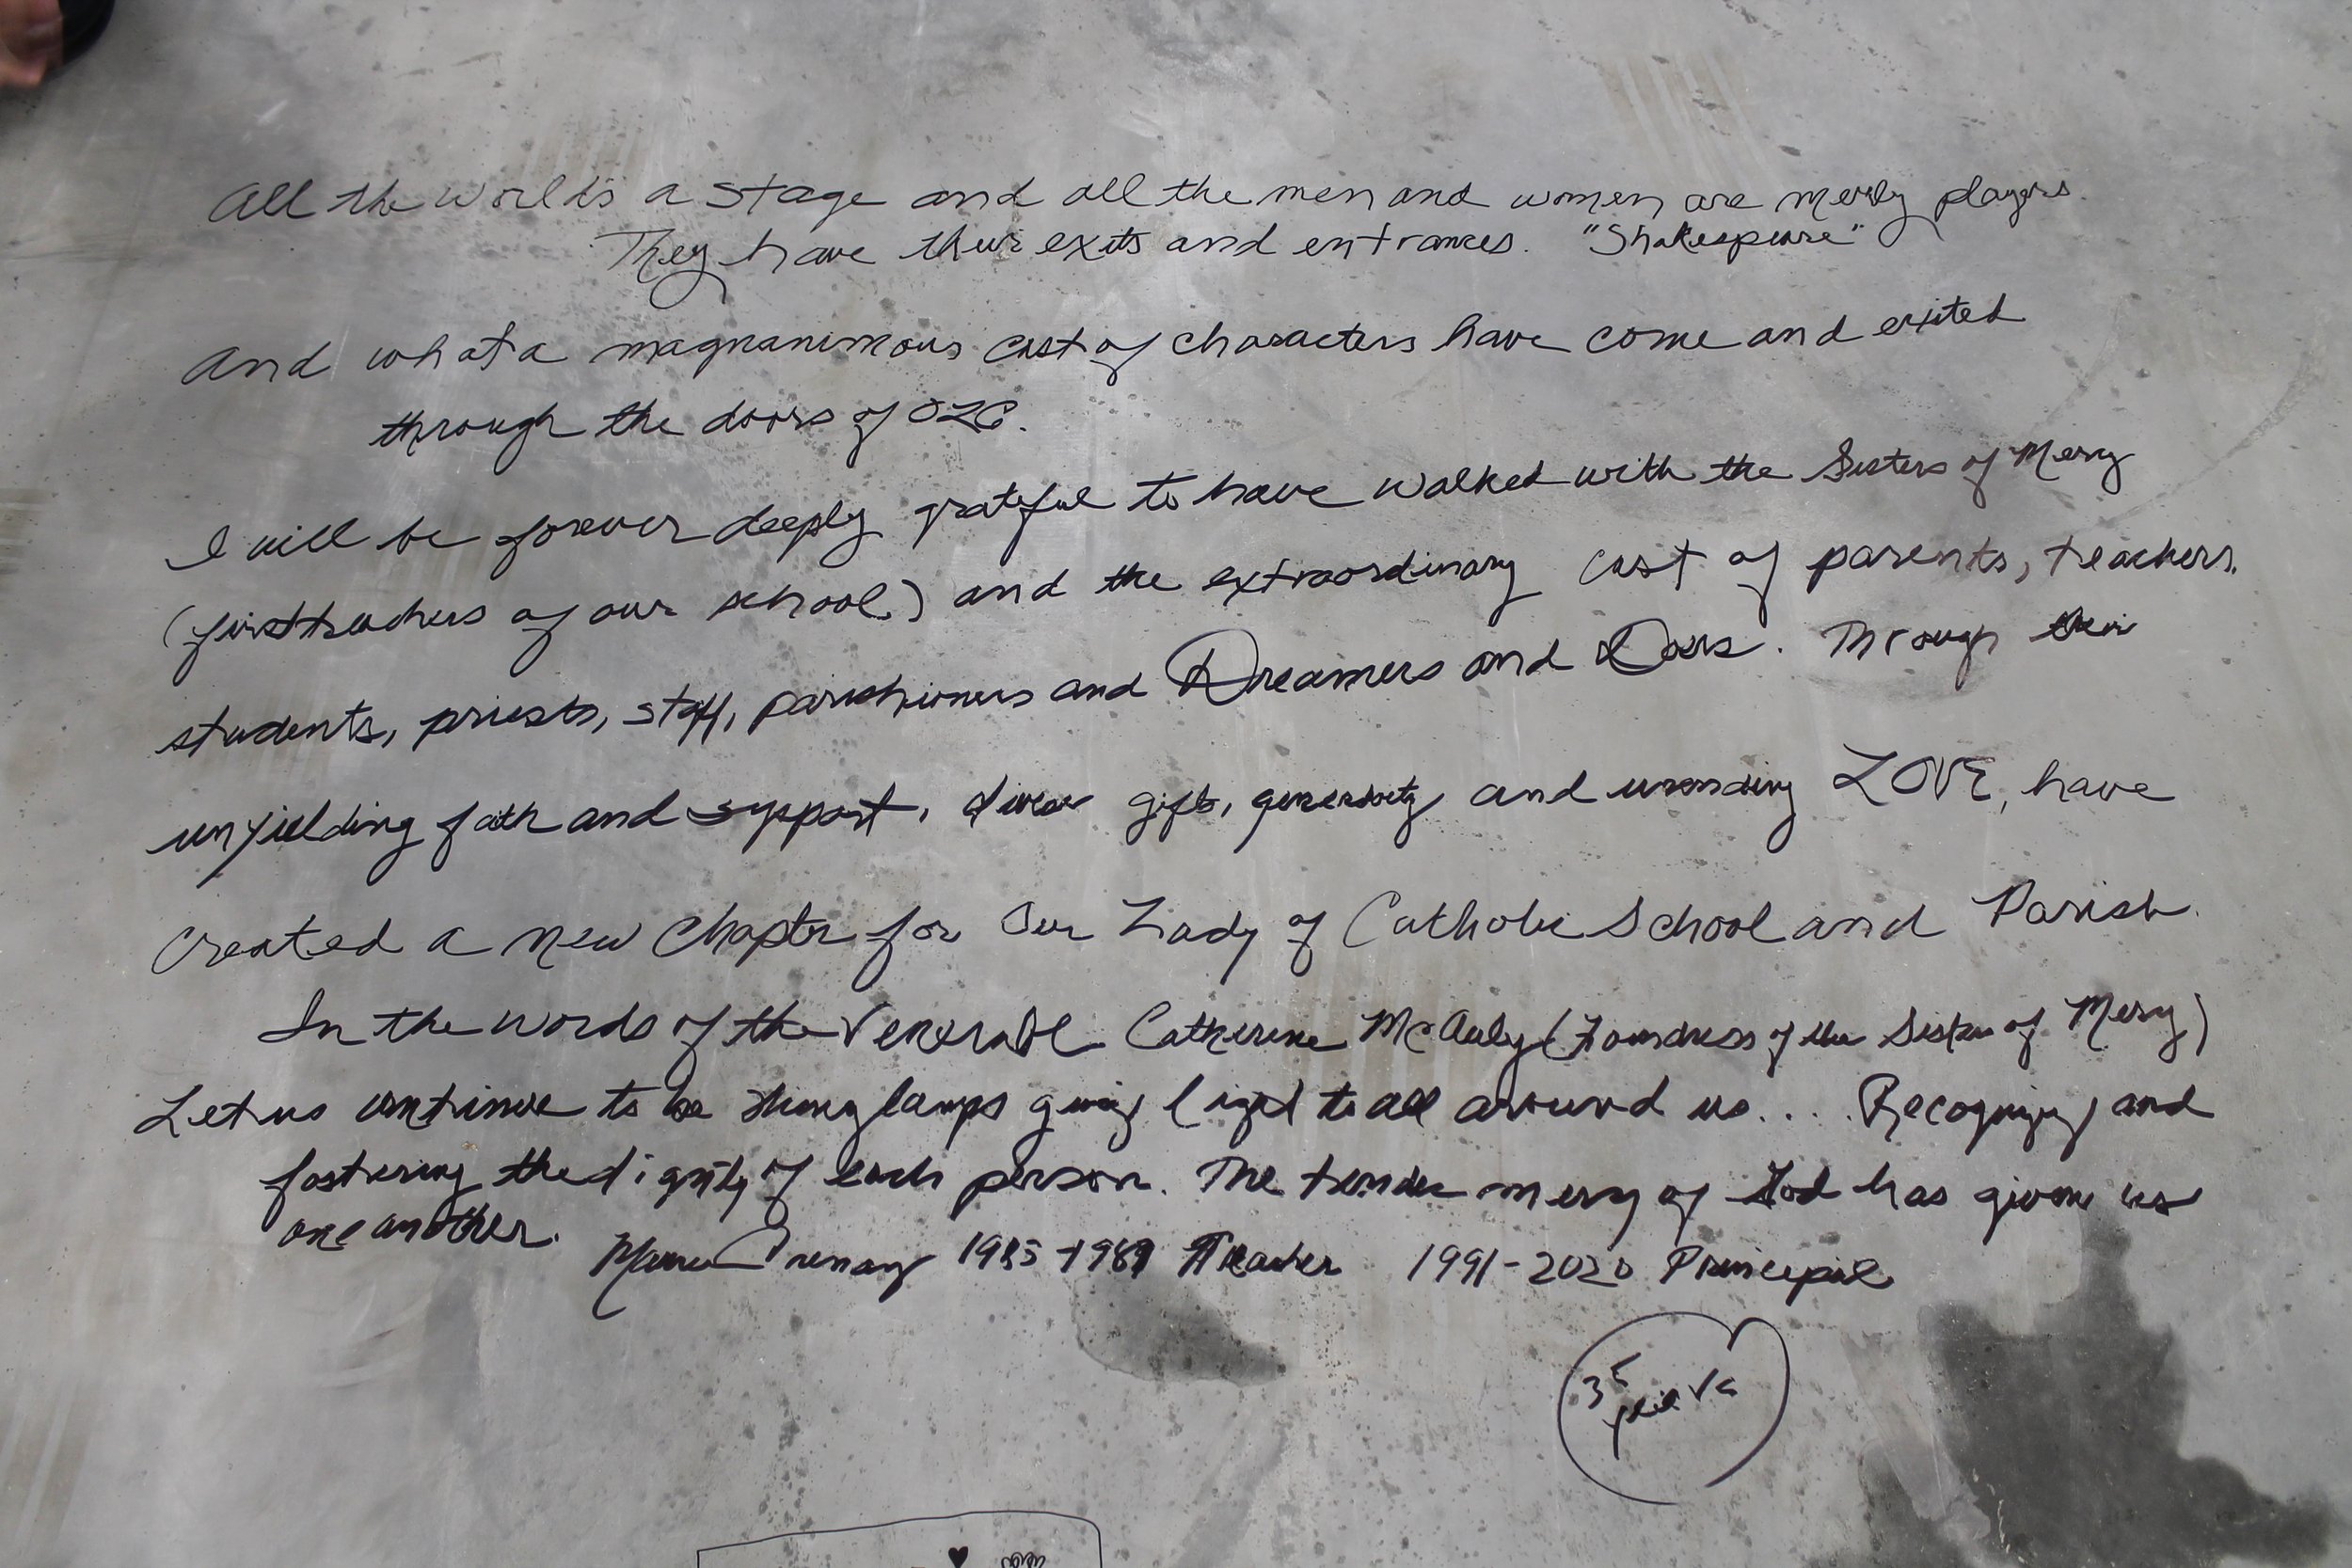 All the world's a stage and all the men and women are merely players.
They have their exits and entrances. "Shakespeare"
And what a magnanimous cast of characters have come and exited
through the doors of OLC.
I will be forever deeply grateful to have walked with the Sisters of Mercy
(first teachers of our school) and the extraordinary cast of parents, teachers,
students, priests, staff, parishioners and Dreamers and Doers. Through their
unyielding faith and support, gifts, generosity and unending LOVE, have
created a new chapter for Our Lady of Catholic School and Parish.
In the words of the Venerable Catherine McAuley (Foundress of the Sisters of Mercy)
Let us continue to be shining lamps giving light to all around us... Recognizing and
fostering the dignity of each person. The tender mercy of God has given us
one another.
1985-1989 Teacher 1991-2020 Principal
35
years